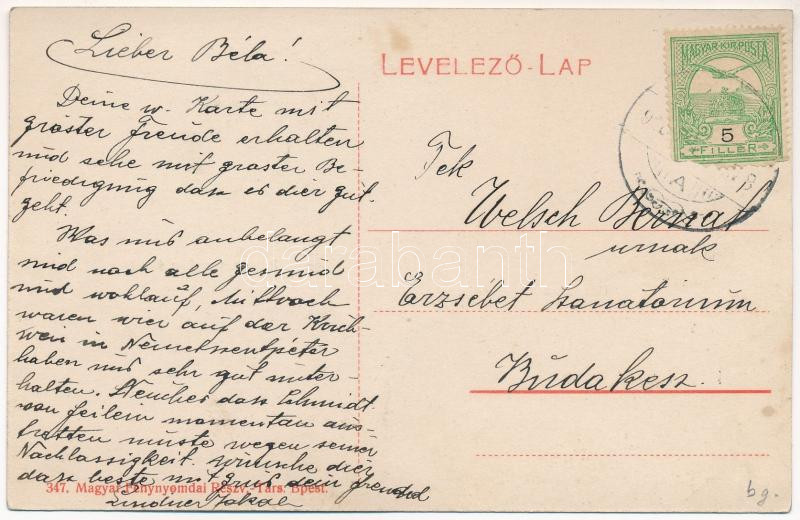 Lieber Béla!
Deine w. Karte mit
gröster Freude erhalten
und sehe mit groster Be-
friedigung dasz es dier gut
geht.
Was uns anbelangt
sind noch alle gesund
und wohlauf, Mittwoch
waren wier auf der Kirch-
wein in Németszentpéter
haben uns sehr gut unter-
halten. dasz Schmidt
von momentan aus-
tretten muste wegen seiner
Nachlassigkeit. wünsche dier
dasz beste mit Grus dein freund
Lindner Jakob
LEVELEZŐ-LAP
MAGYAR KIR. POSTA
5
FILLÉR
Tek
Welsch
urnak
Erzsébet Szanatórium
Budakesz.
347. Magyar Fénynyomdai Részv.-Társ. Bpest.
darabanth
bg.